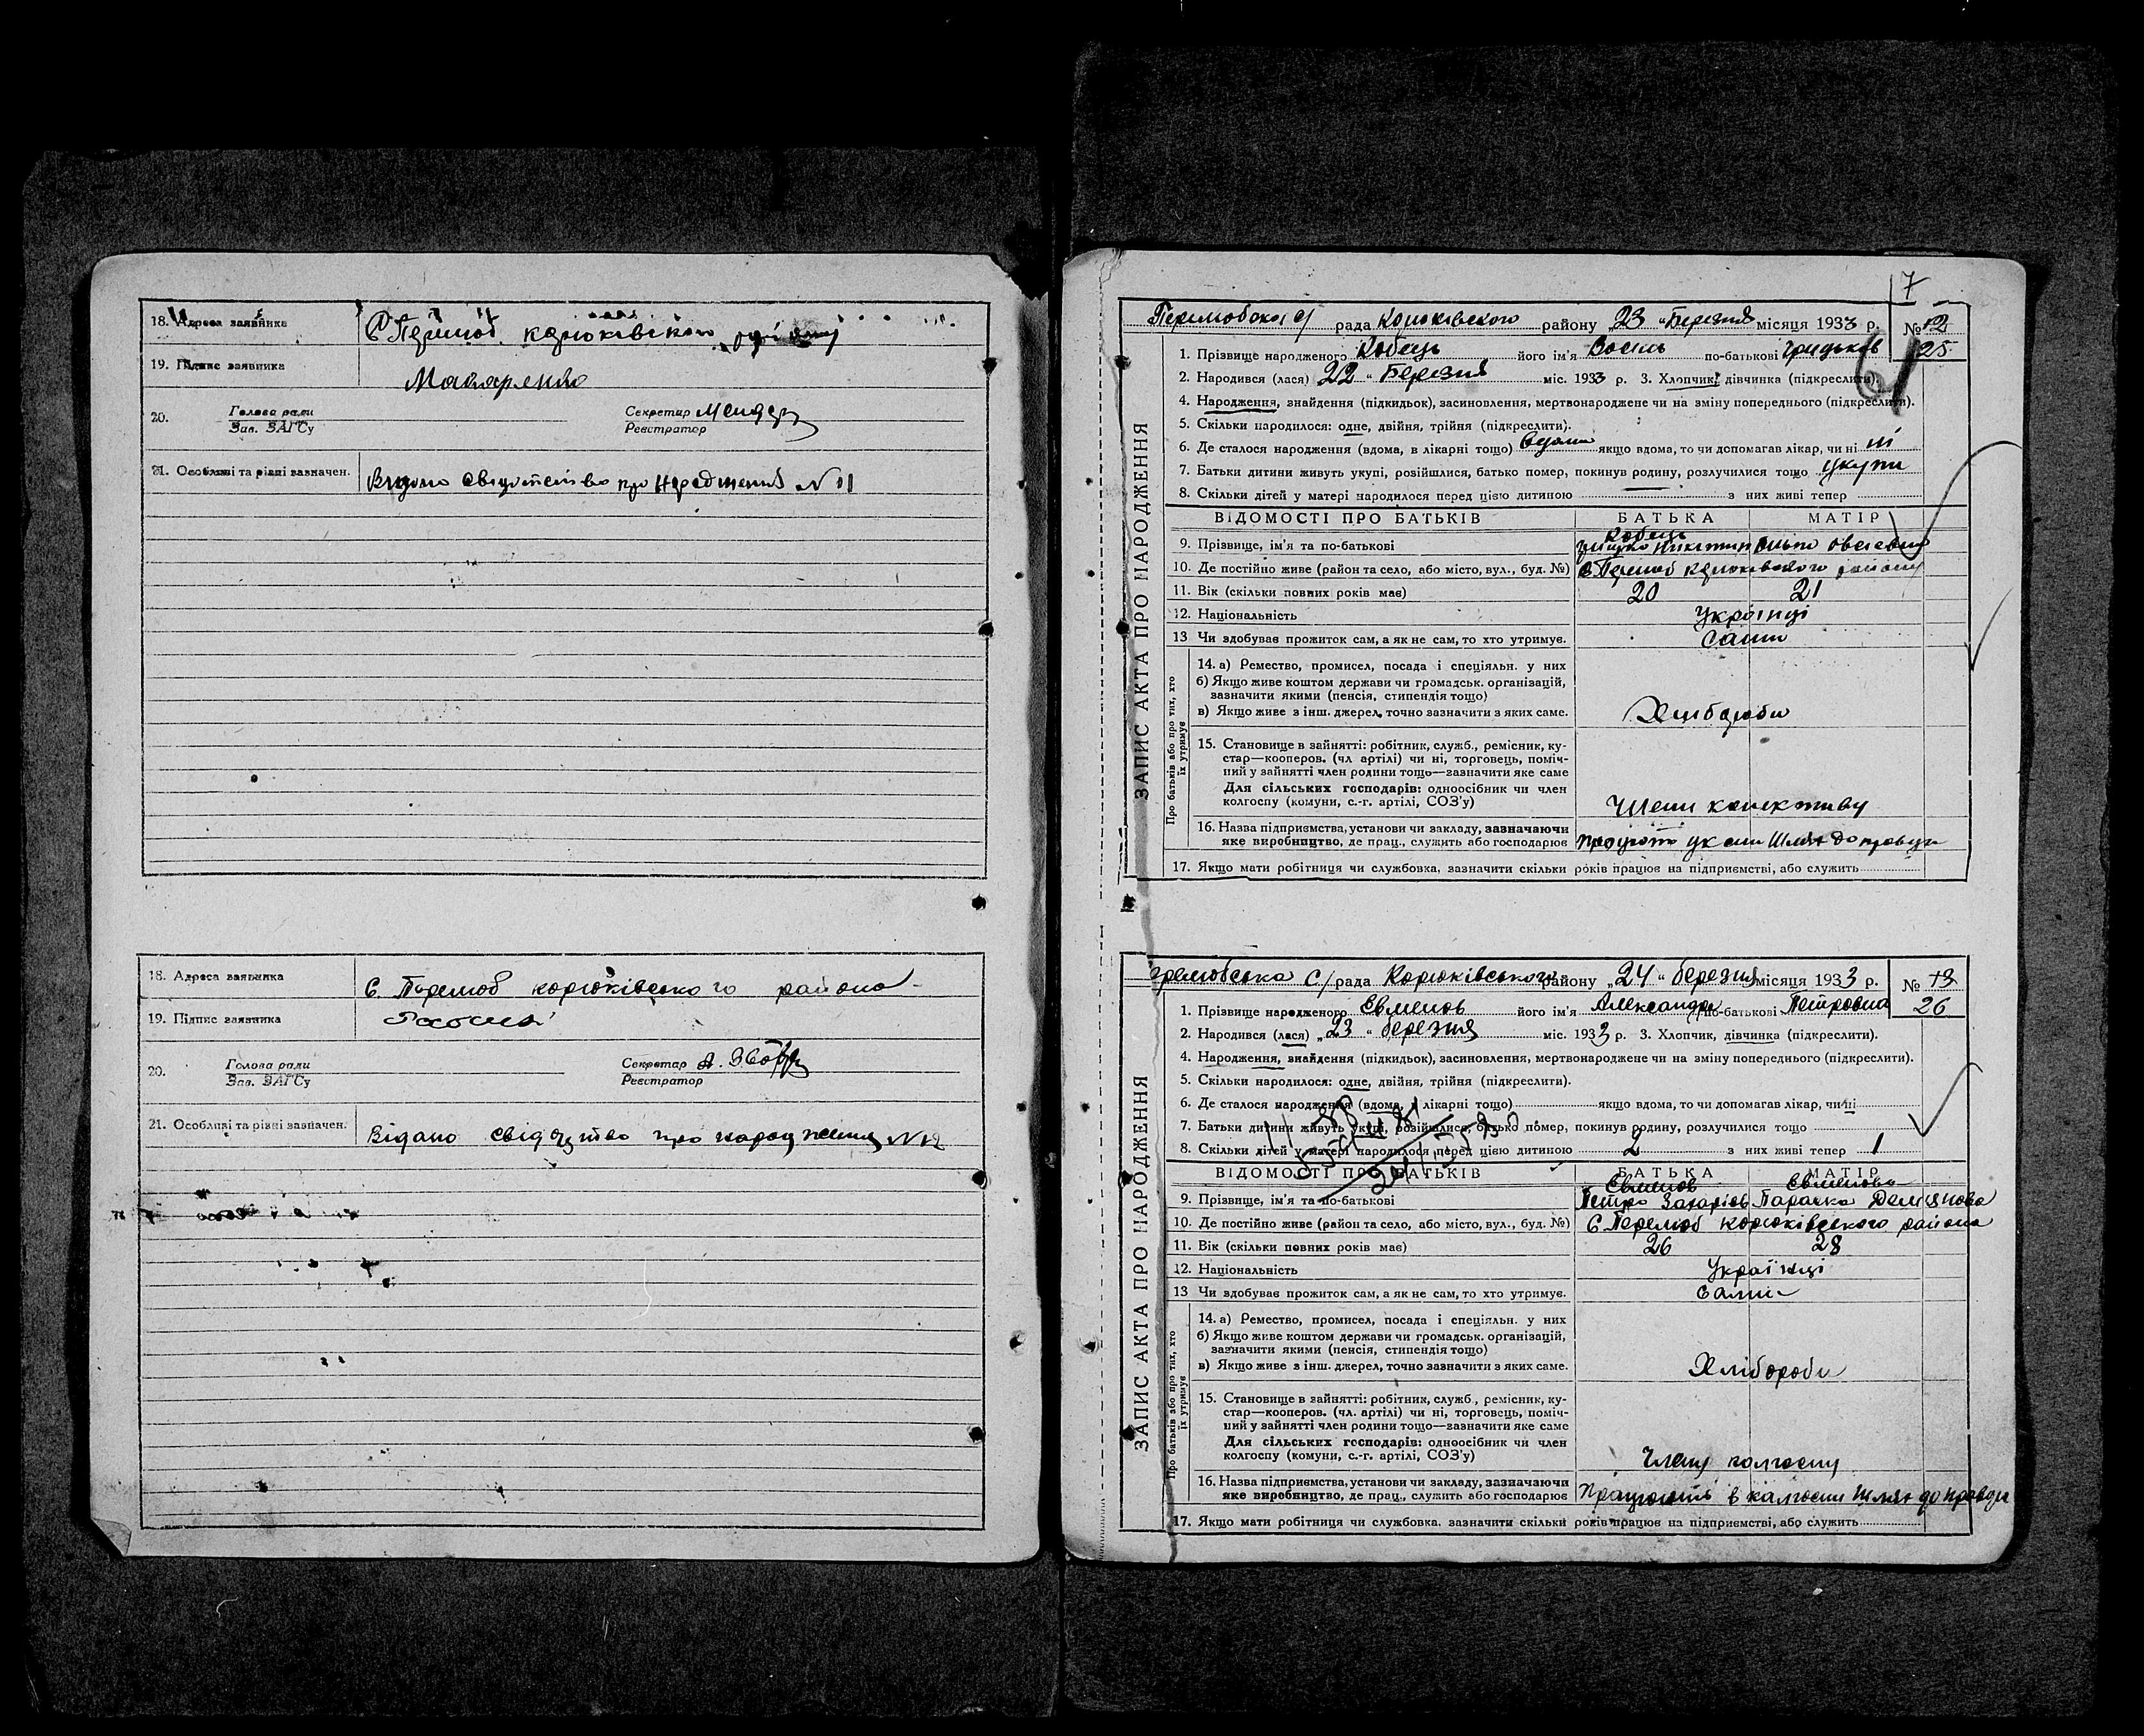 18. Адреса заявника С Перелюб корюківського району
19. Підпис заявника Макаренко
20. Голова ради Секретар
Зав. ЗАГСу Реєстратор
21. Особливі та різні зазначен. Видано свидотство про народження № 11
18. Адреса заявника С. Перелюб корюківського района
19. Підпис заявника
20. Голова ради Секретар
Зав. ЗАГСу Реєстратор
21. Особливі та різні зазначен. Видано свідоцтво про народження № 12
7
Перелюбська с/ рада Корюківського району „23 “ Березня місяця 1933 р. № 12
25
ЗАПИС АКТА ПРО НАРОДЖЕННЯ
1. Прізвище народженого Кобець його ім'я Василь по-батькові Грицьков
2. Народився (лася) 22 “ Березня міс. 1933 р. 3. Хлопчик, дівчинка (підкреслити).
4. Народження, знайдення (підкидьок), засиновлення, мертвонароджене чи на зміну попереднього (підкреслити).
5. Скільки народилося: одне, двійня, трійня (підкреслити).
6. Де сталося народження (вдома, в лікарні тощо) вдома якщо вдома, то чи допомагав лікар, чи ні ні
7. Батьки дитини живуть укупі, розійшлися, батько помер, покинув родину, розлучилися тощо укупи
8. Скільки дітей у матері народилося перед цією дитиною з них живі тепер
ВІДОМОСТІ ПРО БАТЬКІВ БАТЬКА МАТІР
Кобець
9. Прізвище, ім'я та по-батькові
10. Де постійно живе (район та село, або місто, вул., буд. №) с Перелюб Корюківського району
11. Вік (скільки повних років має) 20 21
12. Національність Українці
13 Чи здобуває прожиток сам, а як не сам, то хто утримує. Сами
Про батьків або про тих, хто їх утримує
14. а) Ремество, промисел, посада і спеціяльн. у них
б) Якщо живе коштом держави чи громадськ. організацій,
зазначити якими (пенсія, стипендія тощо)
в) Якщо живе з інш. джерел, точно зазначити з яких саме. Хлибороби
15. Становище в зайнятті: робітник, служб., ремісник, ку-
стар—кооперов. (чл артілі) чи ні, торговець, поміч-
ний у зайнятті член родини тощо—зазначити яке саме
Для сільських господарів: одноосібник чи член
колгоспу (комуни, с.-г. артілі, СОЗ'у) Члени колективу
16. Назва підприємства, установи чи закладу, зазначаючи
яке виробництво, де прац., служить або господарює Шлях до правди
17. Якщо мати робітниця чи службовка, зазначити скільки років працює на підприємстві, або служить
Перелюбська С/ рада Корюківського району „24 “ березня місяця 1933 р. № 13
26
ЗАПИС АКТА ПРО НАРОДЖЕННЯ
1. Прізвище народженого Євменов його ім'я Александра по-батькові Петровна
2. Народився (лася) „23 “ березня міс. 1933 р. 3. Хлопчик, дівчинка (підкреслити).
4. Народження, знайдення (підкидьок), засиновлення, мертвонароджене чи на зміну попереднього (підкреслити).
5. Скільки народилося: одне, двійня, трійня (підкреслити).
6. Де сталося народження (вдома, в лікарні тощо) якщо вдома, то чи допомагав лікар, чи ні
7. Батьки дитини живуть укупі, розійшлися, батько помер, покинув родину, розлучилися тощо
8. Скільки дітей у матері народилося перед цією дитиною 2 з них живі тепер 1
ВІДОМОСТІ ПРО БАТЬКІВ БАТЬКА МАТІР
Євменов Євменова
9. Прізвище, ім'я та по-батькові Петро Захарієв Парачка Демянова
10. Де постійно живе (район та село, або місто, вул., буд. №) С Перелюб корюківського района
11. Вік (скільки повних років має) 26 28
12. Національність Українці
13 Чи здобуває прожиток сам, а як не сам, то хто утримує. Сами
Про батьків або про тих, хто їх утримує
14. а) Ремество, промисел, посада і спеціяльн. у них
б) Якщо живе коштом держави чи громадськ. організацій,
зазначити якими (пенсія, стипендія тощо)
в) Якщо живе з інш. джерел, точно зазначити з яких саме. Хлібороби
15. Становище в зайнятті: робітник, служб., ремісник, ку-
стар—кооперов. (чл. артілі) чи ні, торговець, поміч-
ний у зайнятті член родини тощо—зазначити яке саме
Для сільських господарів: одноосібник чи член
колгоспу (комуни, с.-г. артілі, СОЗ'у) Члени колгоспу
16. Назва підприємства, установи чи закладу, зазначаючи
яке виробництво, де прац., служить або господарює Працюють в калгоспи Шлях до правди
17. Якщо мати робітниця чи службовка, зазначити скільки років працює на підприємстві, або служить